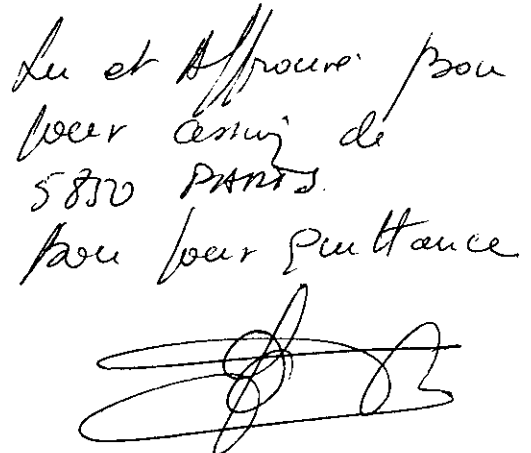 Lu et Approuvé Bon
pour cession de
5830 PARTS.
Bon pour Quittance